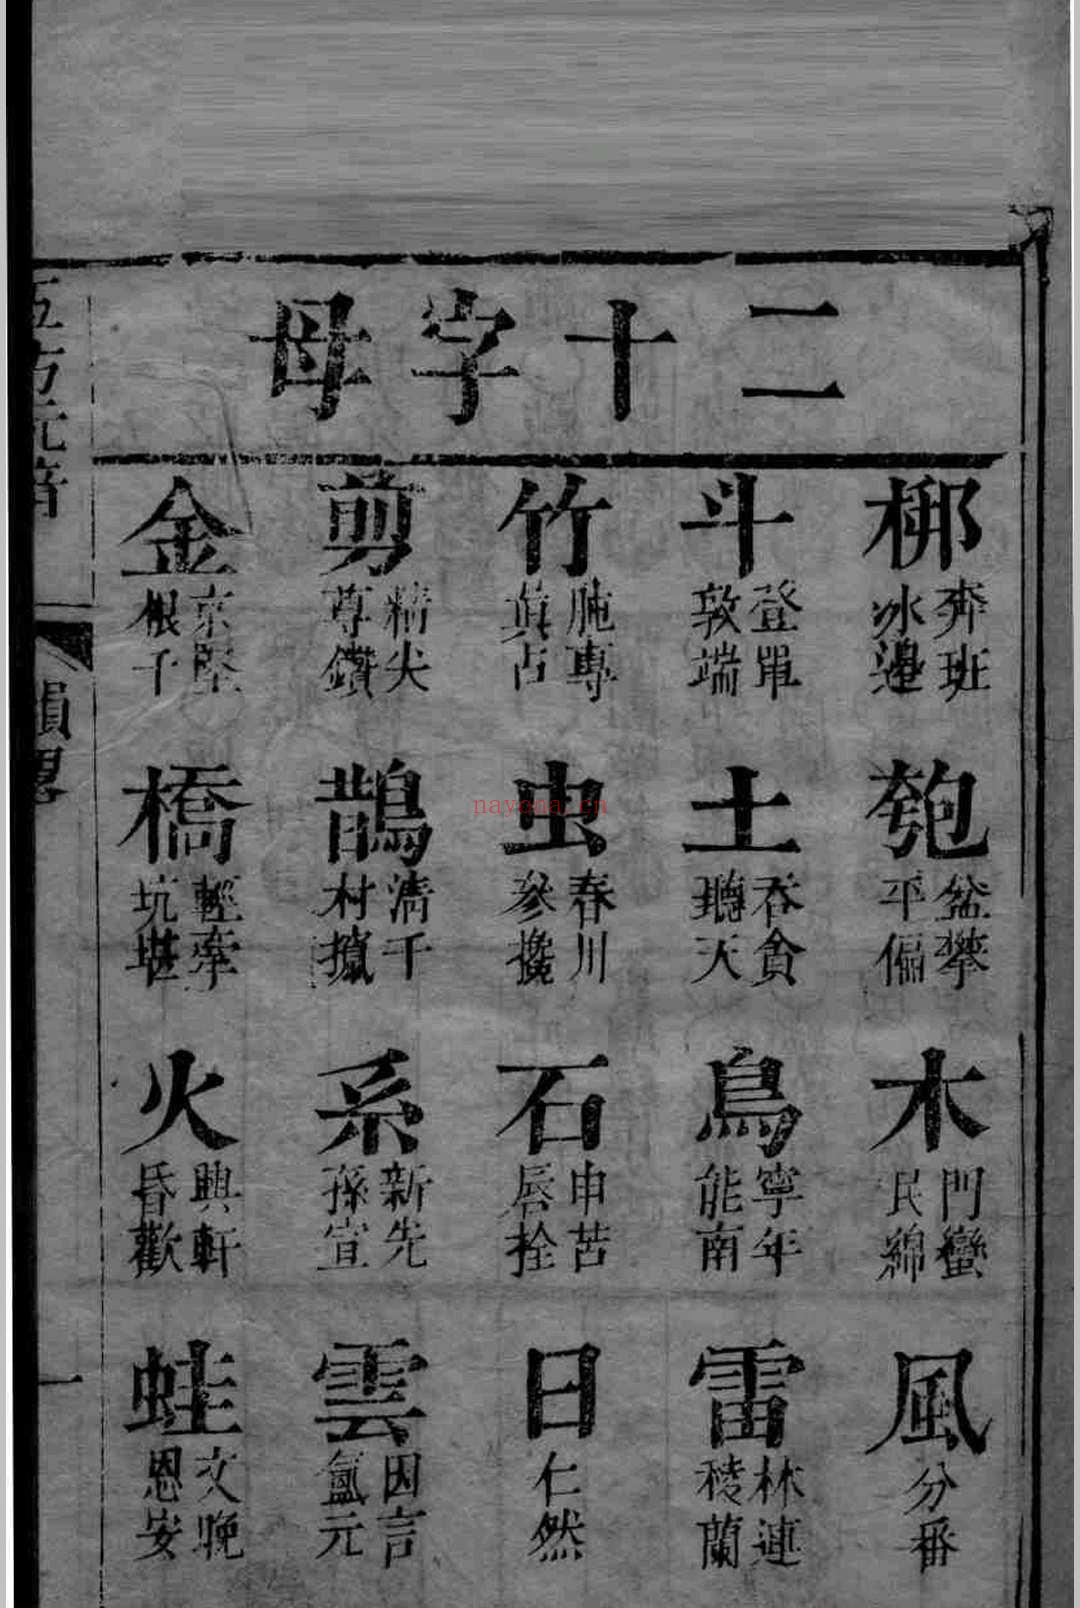 二十字母
梆
奔班
冰邊
匏
盆攀
平偏
木
門蠻
民綿
風
分番
斗
登單
敦端
土
吞貪
聽天
鳥
寧年
能南
雷
林連
稜蘭
竹
肫專
真占
虫
春川
參攙
石
申苫
唇拴
日
仁然
剪
精尖
尊鑽
鵲
清千
村攛
系
新先
孫宣
雲
因言
氳元
金
京堅
根干
橋
輕牽
坑堪
火
興軒
昏歡
蛙
文晚
恩安
五方元音
韻畧
一
nayona.cn